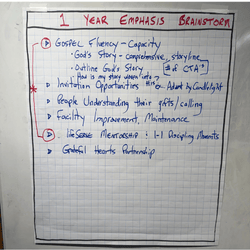 1 YEAR EMPHASIS BRAINSTORM
GOSPEL FLUENCY - CAPACITY
· God's Story - comprehensive storyline
· Outline God's Story
How is my story woven into
Invitation Opportunities Advent by Candlelight
People Understanding their gifts/calling
Facility Improvement, Maintenance
LifeServe Mentorship 1-1 Discipling Moments
Grateful Hearts Partnership